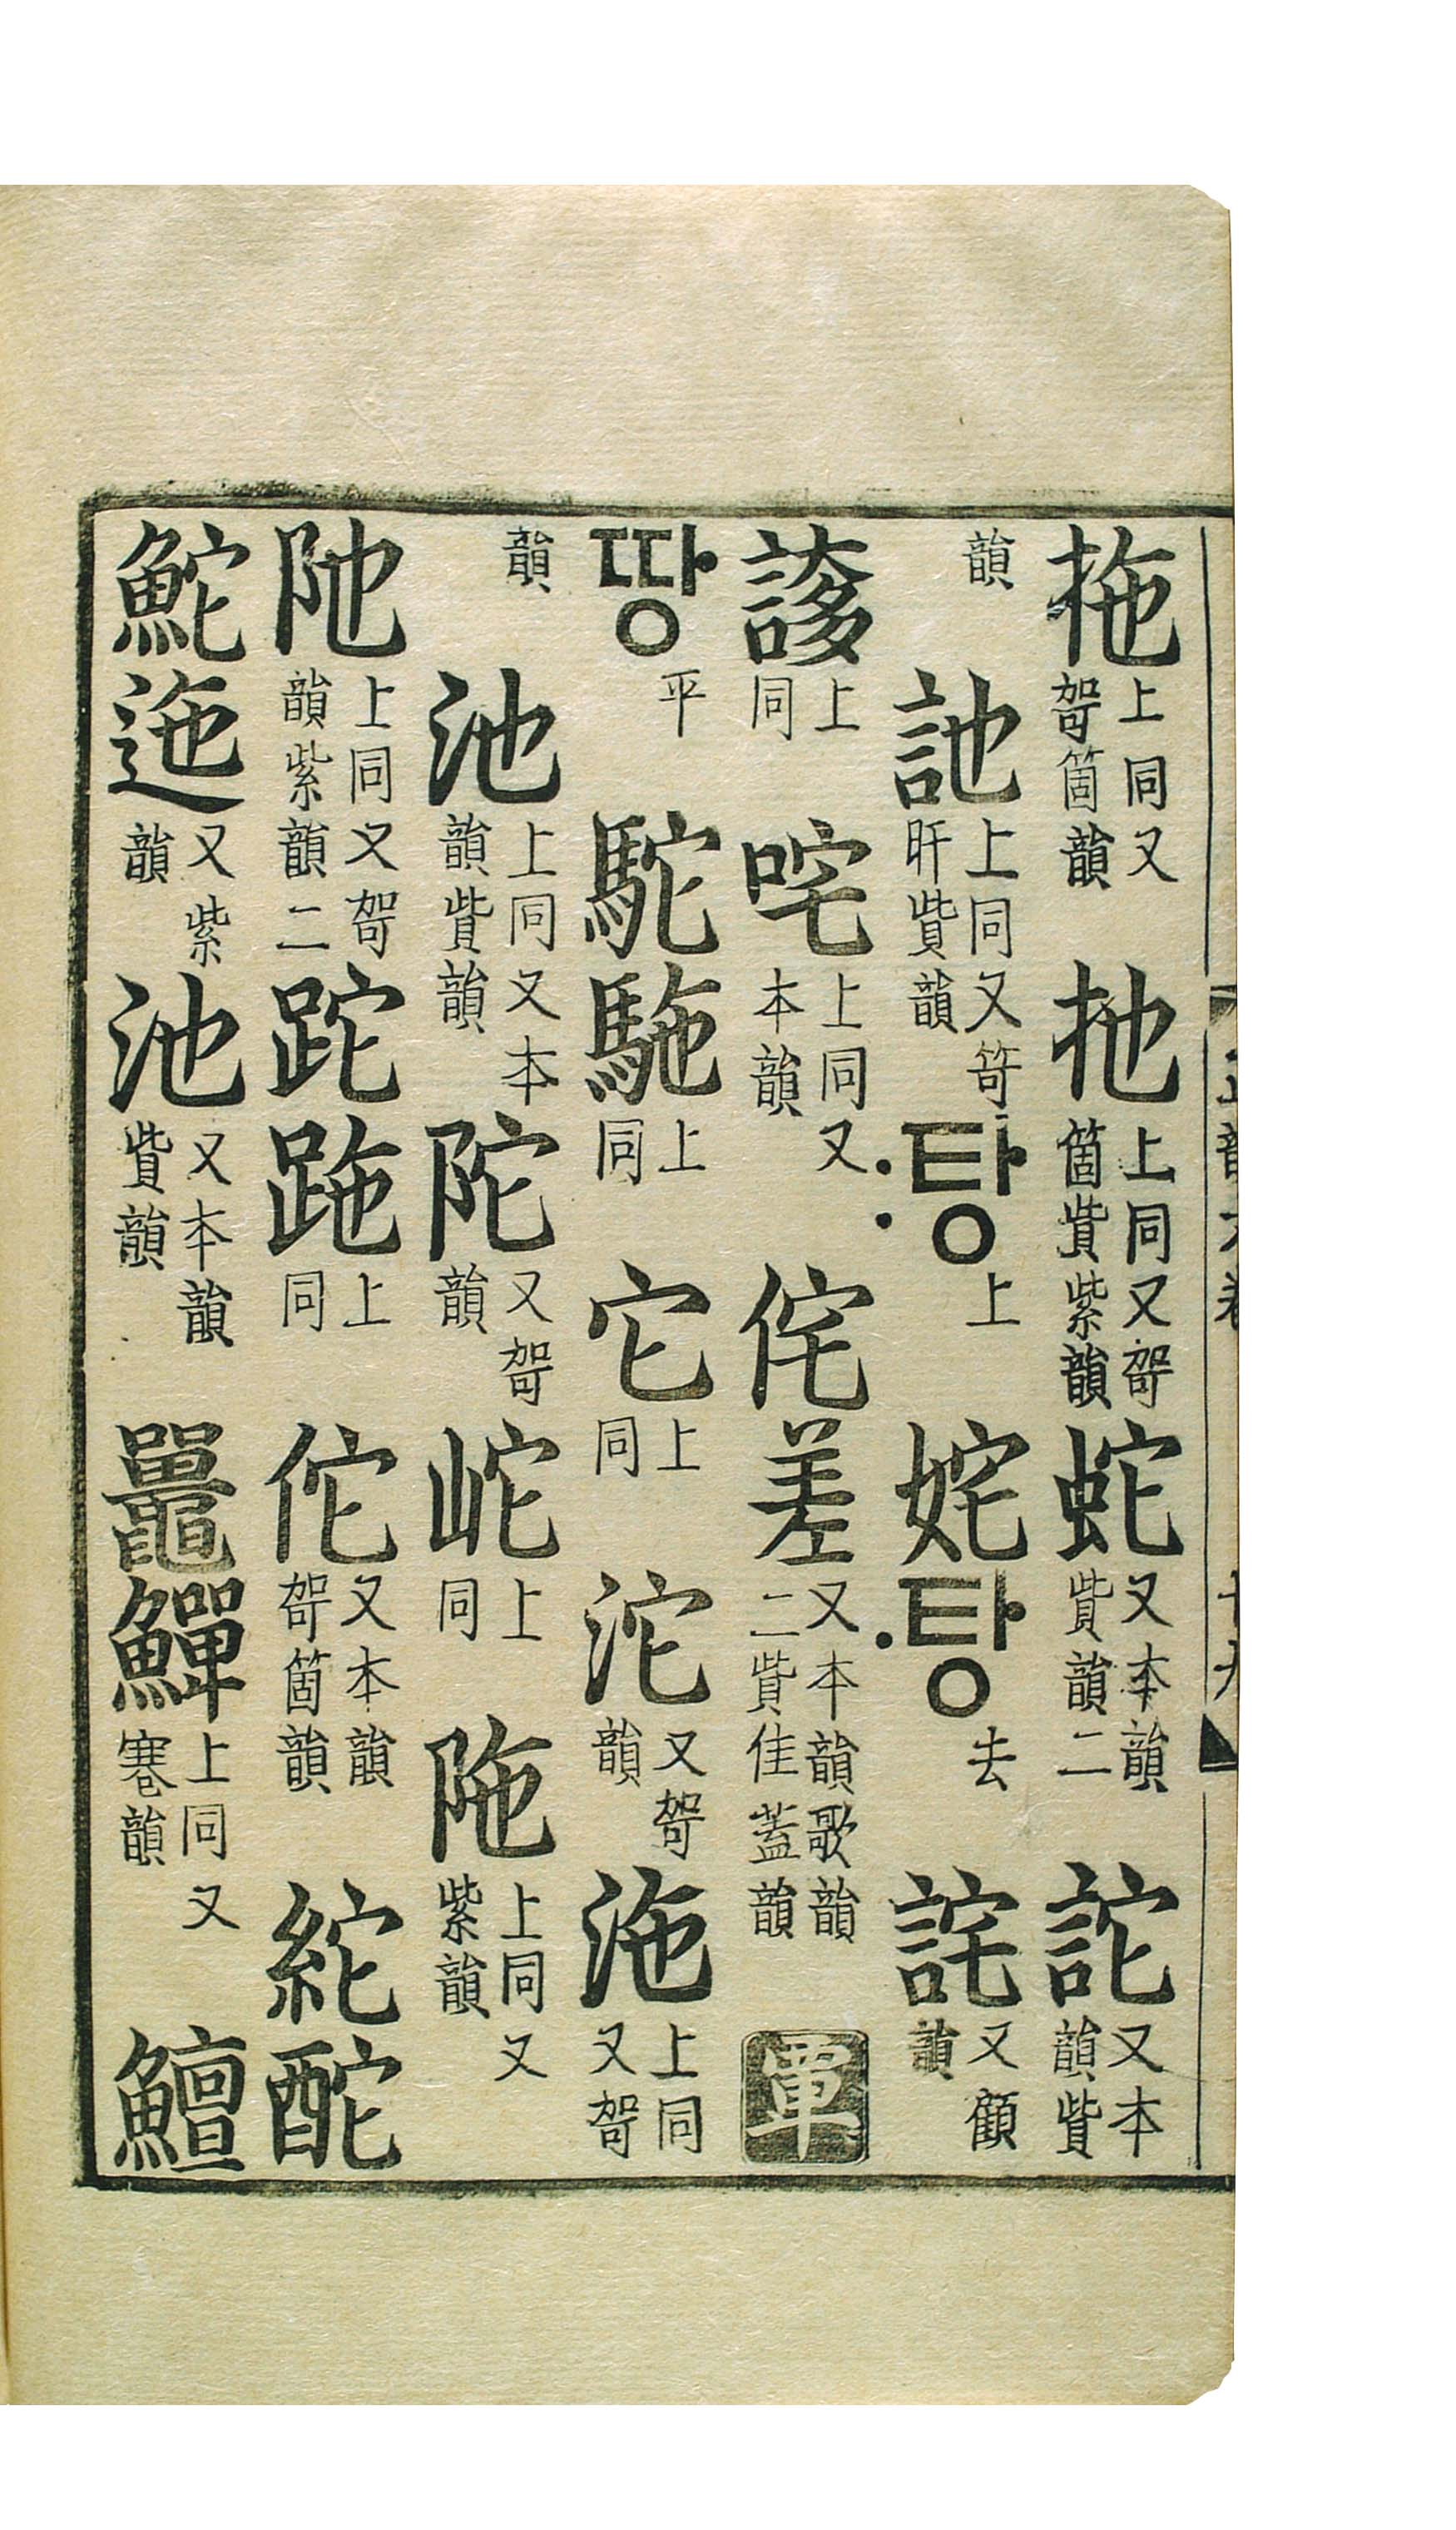 拖上同又哿箇韻扡上同又哿箇貲紫韻蛇又本韻貲韻二詑又本韻貲
韻訑上同又笴旰貲韻〯탕上奼〮탕去詫又顧韻
誃上同咤上同又本韻侘差又本韻歌韻二貲佳蓋韻覃
땅平駝駞上同它上同沱又哿韻沲上同又哿
韻池上同又本韻貲韻陀又哿韻岮上同陁上同又紫韻
阤上同又哿韻紫韻二跎跎上同佗又本韻哿箇韻紽酡
鮀迤又紫韻池又本韻貲韻鼉鱓上同又寋韻鱣